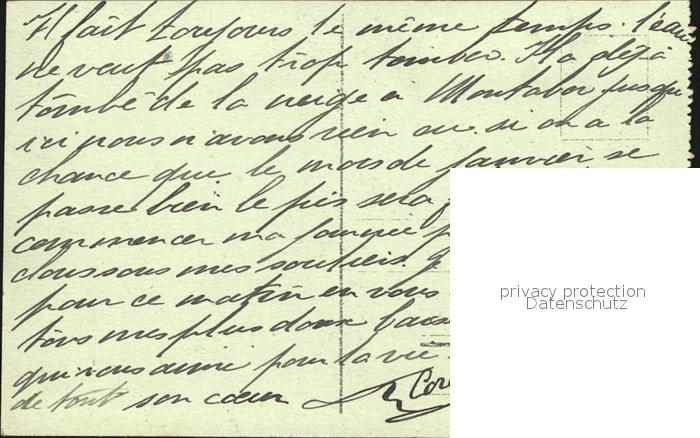 Il fait toujours le même temps. l'eau
ne veut pas trop tomber. Il a déjà
tombé de la neige a Montabor jusqu
ici nous n'avons rien eu. si on a la
chance que le mois de Janvier se
passe bien le pis sera
commencer ma journée
clous sous mes souliers.
pour ce matin en vous
tous mes plus doux baisers
qui vous aime pour la vie
de tout son cœur
privacy protection
Datenschutz